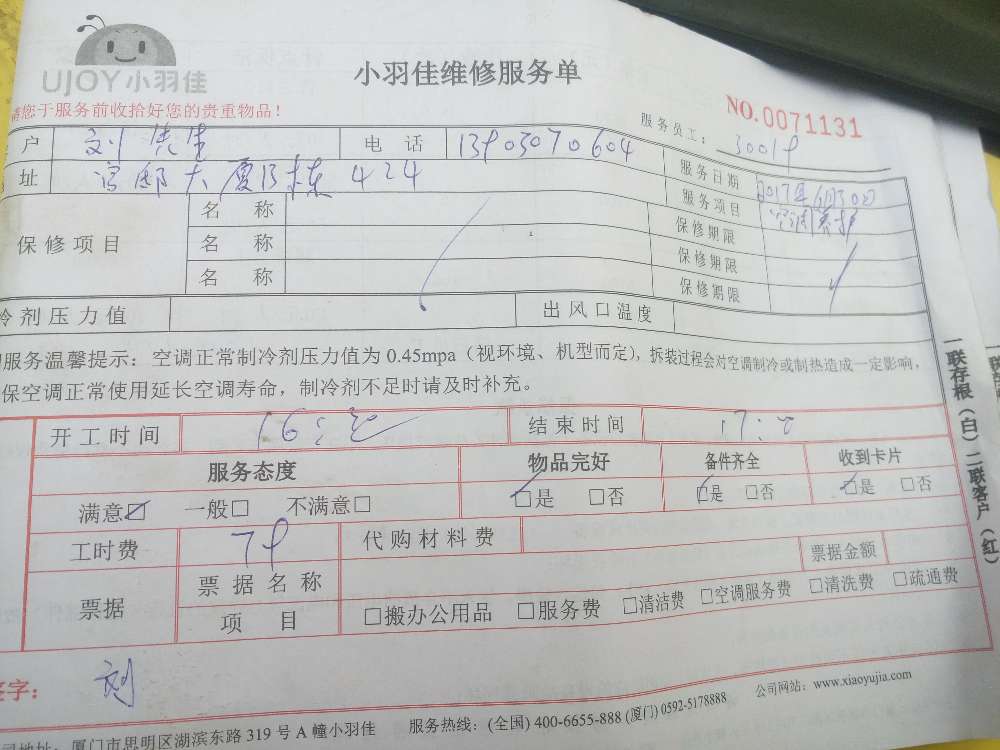 UJOY小羽佳
小羽佳维修服务单
NO.0071131
您于服务前收拾好您的贵重物品！
服务员工：
户 刘先生 电话 13903070604 服务日期 2017年6月30日
址 大厦B栋 424 服务项目 空调养护
保修项目 名称 保修期限
名称 保修期限
名称 保修期限
冷剂压力值 出风口温度
服务温馨提示：空调正常制冷剂压力值为 0.45mpa（视环境、机型而定），拆装过程会对空调制冷或制热造成一定影响，
保空调正常使用延长空调寿命，制冷剂不足时请及时补充。
开工时间 16:30 结束时间 17:00
服务态度 物品完好 备件齐全 收到卡片
满意☑ 一般□ 不满意□ ☑是 □否 ☑是 □否 ☑是 □否
工时费 79 代购材料费
票据 票据名称 票据金额
项目 □搬办公用品 □服务费 □清洁费 □空调服务费 □清洗费 □疏通费
签字： 刘
司地址：厦门市思明区湖滨东路 319 号 A 幢小羽佳 服务热线：(全国) 400-6655-888 (厦门) 0592-5178888 公司网站：www.xiaoyujia.com
一联存根（白）二联客户（红）